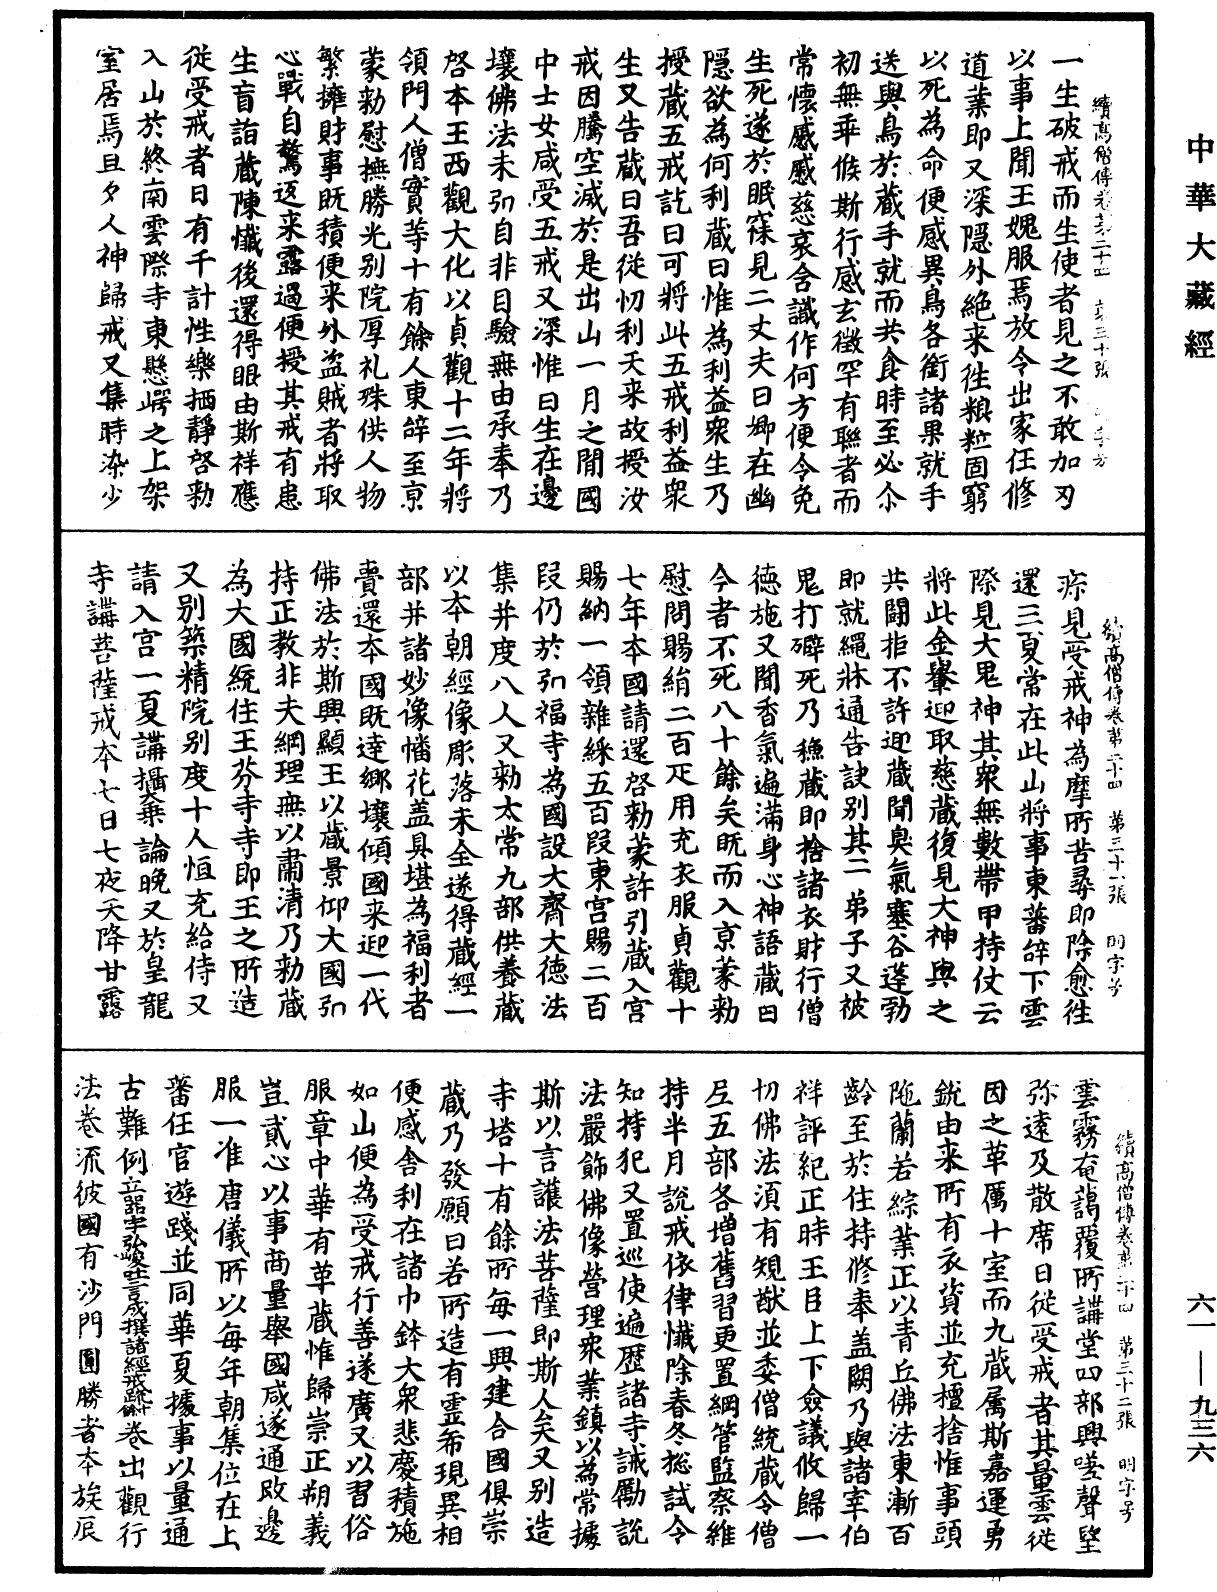 中華大藏經
續高僧傳卷第二十四　第三十張　明字号
一生破戒而生使者見之不敢加刃
以事上聞王媿服焉放令出家任修
道業即又深隱外絶来往粮粒固窮
以死為命便感異鳥各銜諸果就手
送與鳥於藏手就而共食時至必尒
初無乖候斯行感玄徵罕有聯者而
常懷慼慼慈哀含識作何方便令免
生死遂於眠寐見二丈夫曰卿在幽
隱欲為何利藏曰惟為利益衆生乃
授藏五戒訖曰可將此五戒利益衆
生又告藏曰吾從忉利天来故授汝
戒因騰空滅於是出山一月之間國
中士女咸受五戒又深惟曰生在邊
壤佛法未弘自非目驗無由承奉乃
啓本王西觀大化以貞觀十二年將
領門人僧實等十有餘人東辭至京
蒙勑慰撫勝光别院厚礼殊供人物
繁擁財事既積便来外盗賊者將取
心戰自驚返来露過便授其戒有患
生盲詣藏陳懺後還得眼由斯祥應
從受戒者日有千計性樂栖靜啓勑
入山於終南雲際寺東懸崿之上架
室居焉旦夕人神歸戒又集時染少
續高僧傳卷第二十四　第三十一張　明字号
疹見受戒神為摩所苦尋即除愈往
還三夏常在此山將事東蕃辞下雲
際見大鬼神其衆無數帶甲持仗云
將此金轝迎取慈藏復見大神與之
共鬭拒不許迎藏聞臭氣塞谷蓬勃
即就繩牀通告訣别其二弟子又被
鬼打躃死乃穌藏即捨諸衣財行僧
德施又聞香氣遍滿身心神語藏曰
今者不死八十餘矣既而入京蒙勑
慰問賜絹二百疋用充衣服貞觀十
七年本國請還啓勑蒙許引藏入宫
賜納一領雜綵五百段東宫賜二百
段仍於弘福寺為國設大齋大德法
集并度八人又勑太常九部供養藏
以本朝經像彫落未全遂得藏經一
部并諸妙像幡花盖具堪為福利者
賷還本國既達鄉壤傾國来迎一代
佛法於斯興顯王以藏景仰大國弘
持正教非夫綱理無以肅清乃勑藏
為大國統住王芬寺寺即王之所造
又别築精院别度十人恒充給侍又
請入宫一夏講攝乘論晚又於皇龍
寺講菩薩戒本七日七夜天降甘露
續高僧傳卷第二十四　第三十二張　明字号
雲霧奄藹覆所講堂四部興嗟聲望
弥遠及散席日從受戒者其量雲從
因之革厲十室而九藏属斯嘉運勇
銳由来所有衣資並充檀捨惟事頭
陁蘭若綜業正以青丘佛法東漸百
齡至於住持修奉盖闕乃與諸宰伯
祥評紀正時王臣上下僉議攸歸一
切佛法湏有䂓猷並委僧統藏令僧
尼五部各增舊習更置綱管監察維
持半月說戒依律懺除春冬捴試令
知持犯又置巡使遍歷諸寺誡勵說
法嚴飾佛像營理衆業鎮以為常據
斯以言護法菩薩即斯人矣又别造
寺塔十有餘所每一興建合國俱崇
藏乃發願曰若所造有霊希現異相
便感舍利在諸巾鉢大衆悲慶積施
如山便為受戒行善遂廣又以習俗
服章中華有革藏惟歸崇正朔義
豈貳心以事商量舉國咸遂通改邊
服一准唐儀所以每年朝集位在上
蕃任官遊踐並同華夏據事以量通
古難例立器宇弘峻吐言成撰諸經戒䟽十餘卷出觀行
法卷流彼國有沙門圓勝者本族辰
六一——九三六